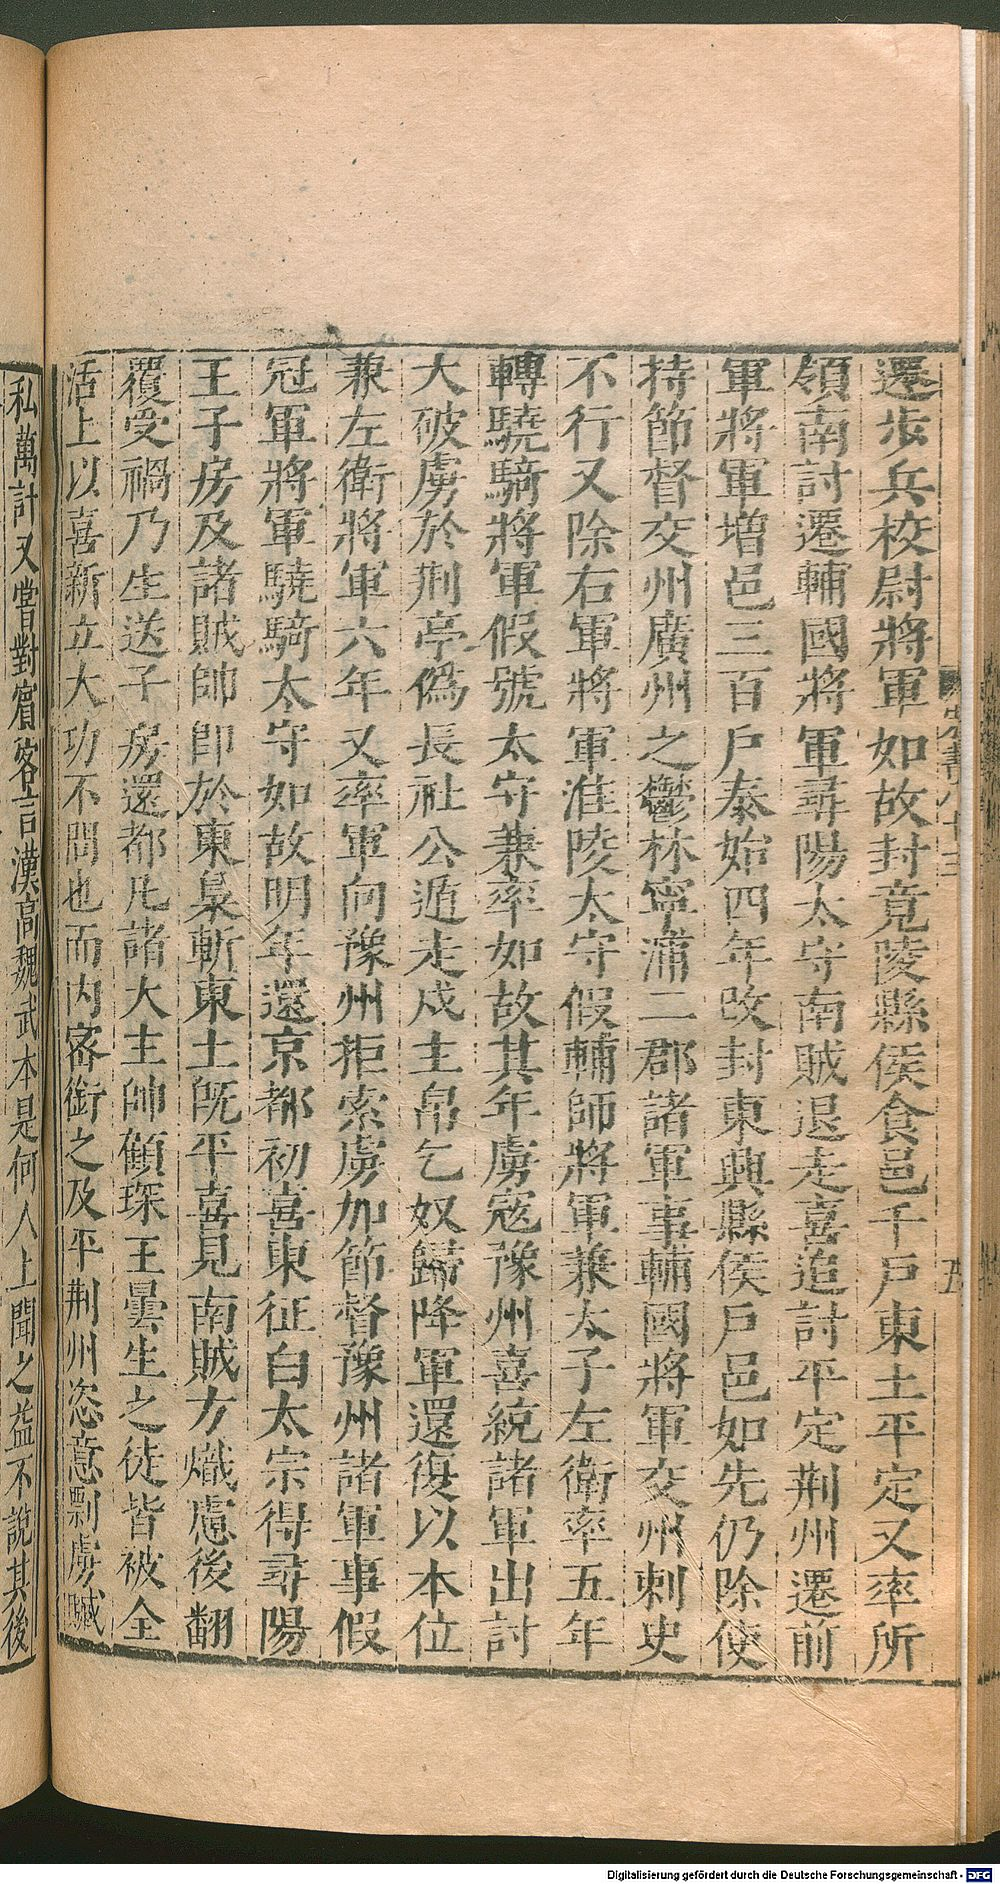 還步兵校尉將軍如故封竟陵縣侯食邑千戶東土平定又率所
領南討遷輔國將軍尋陽太守南賊退走喜追討平定荆州遷前
軍將軍增邑三百戶泰始四年改封東興縣侯戶邑如先仍除使
持節督交州廣州之鬱林寧浦二郡諸軍事輔國將軍交州刺史
不行又除右軍將軍淮陵太守假輔師將軍兼太子左衛率五年
轉驍騎將軍假號太守兼率如故其年虜寇豫州喜統諸軍出討
大破虜於荆亭僞長社公遁走戍主帛乞奴歸降軍還復以本位
兼左衛將軍六年又率軍向豫州拒索虜加節督豫州諸軍事假
冠軍將軍驍騎太守如故明年還京都初喜東征白太宗得尋陽
王子房及諸賊帥即於東梟斬東土旣平喜見南賊方熾慮後翻
覆受禍乃生送子房還都凡諸大主帥顧琛王曇生之徒皆被全
活上以喜新立大功不問也而內審銜之及平荆州恣意剽虜贓
私萬計又嘗對賓客言漢高魏武本是何人上聞之益不說其後
宋書八十三
五
Digitalisierung gefördert durch die Deutsche Forschungsgemeinschaft - DFG